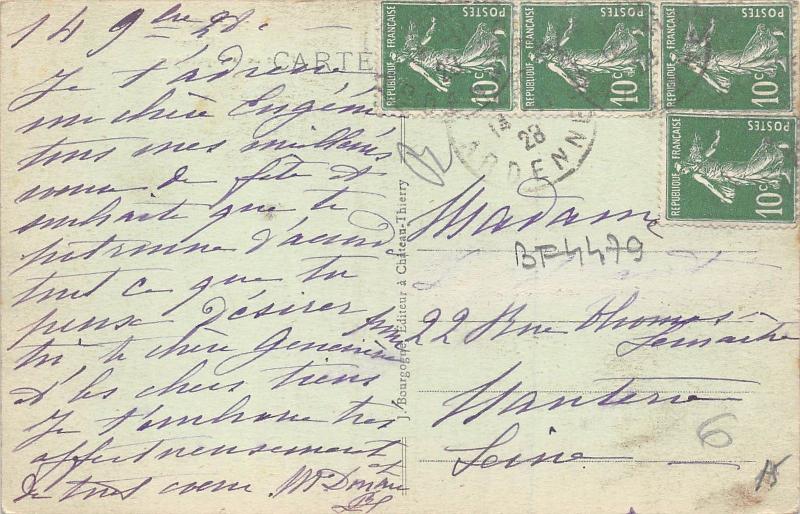 14 9bre 28.
CARTE
Je t'adresse
ma chère Eugénie
tous mes meilleurs
voeux de fête et
souhaite que ta
patronne t'accorde
tout ce que tu
peux désirer
toi ta chère Geneviève
et les chers tiens
Je t'embrasse très
affectueusement et
de tout coeur
J. Bourgogne, Editeur à Château-Thierry
REPUBLIQUE FRANÇAISE POSTES 10c
REPUBLIQUE FRANÇAISE POSTES 10c
REPUBLIQUE FRANÇAISE POSTES 10c
REPUBLIQUE FRANÇAISE POSTES 10c
28
ARDENNE
Madame
BF4479
22 Rue Thomas
Lemaître
Nanterre
Seine
6